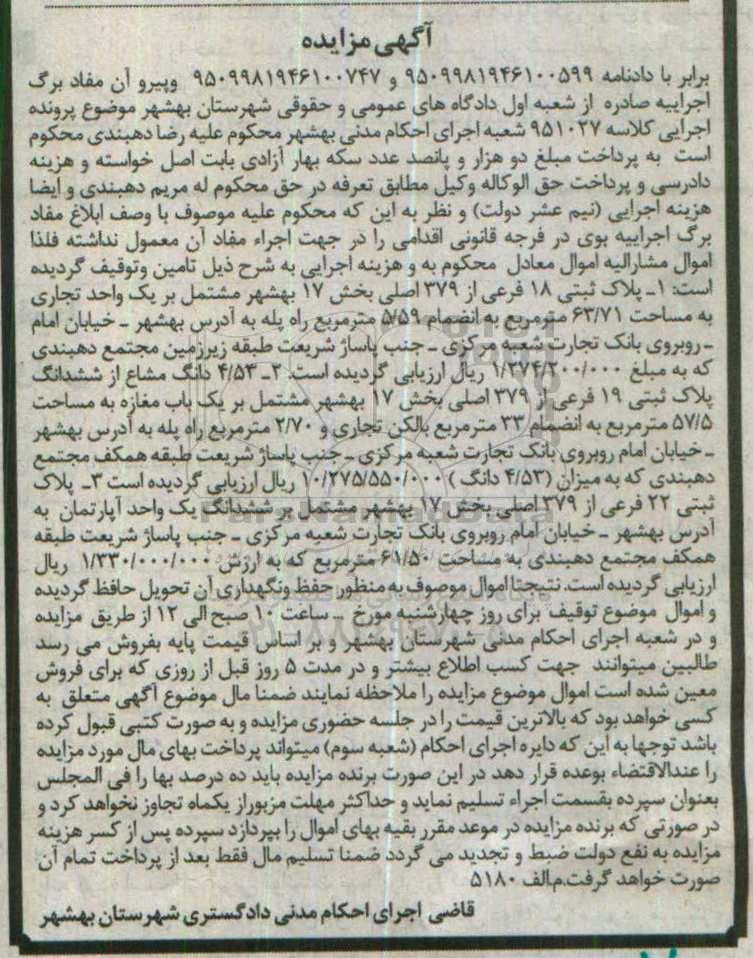 آگهی مزایده
برابر با دادنامه ۹۵۰۹۹۸۱۹۴۶۱۰۰۵۹۹ و ۹۵۰۹۹۸۱۹۴۶۱۰۰۷۴۷ وپیرو آن مفاد برگ
اجراییه صادره از شعبه اول دادگاه های عمومی و حقوقی شهرستان بهشهر موضوع پرونده
اجرایی کلاسه ۹۵۱۰۲۷ شعبه اجرای احکام مدنی بهشهر محکوم علیه رضا دهبندی محکوم
است به پرداخت مبلغ دو هزار و پانصد عدد سکه بهار آزادی بابت اصل خواسته و هزینه
دادرسی و پرداخت حق الوکاله وکیل مطابق تعرفه در حق محکوم له مریم دهبندی و ایضا
هزینه اجرایی (نیم عشر دولت) و نظر به این که محکوم علیه موصوف با وصف ابلاغ مفاد
برگ اجراییه بوی در فرجه قانونی اقدامی را در جهت اجراء مفاد آن معمول نداشته فلذا
اموال مشارالیه اموال معادل محکوم به و هزینه اجرایی به شرح ذیل تامین وتوقیف گردیده
است: ۱ـ پلاک ثبتی ۱۸ فرعی از ۳۷۹ اصلی بخش ۱۷ بهشهر مشتمل بر یک واحد تجاری
به مساحت ۶۳/۷۱ مترمربع به انضمام ۵/۵۹ مترمربع راه پله به آدرس بهشهر ـ خیابان امام
ـ روبروی بانک تجارت شعبه مرکزی ـ جنب پاساژ شریعت طبقه زیرزمین مجتمع دهبندی
که به مبلغ ۱/۲۷۴/۲۰۰/۰۰۰ ریال ارزیابی گردیده است. ۲ـ ۴/۵۳ دانگ مشاع از ششدانگ
پلاک ثبتی ۱۹ فرعی از ۳۷۹ اصلی بخش ۱۷ بهشهر مشتمل بر یک باب مغازه به مساحت
۵۷/۵ مترمربع به انضمام ۳۳ مترمربع بالکن تجاری و ۲/۷۰ مترمربع راه پله به آدرس بهشهر
ـ خیابان امام روبروی بانک تجارت شعبه مرکزی ـ جنب پاساژ شریعت طبقه همکف مجتمع
دهبندی که به میزان (۴/۵۳ دانگ) ۱۰/۲۷۵/۵۵۰/۰۰۰ ریال ارزیابی گردیده است ۳ـ پلاک
ثبتی ۲۲ فرعی از ۳۷۹ اصلی بخش ۱۷ بهشهر مشتمل بر ششدانگ یک واحد آپارتمان به
آدرس بهشهر ـ خیابان امام روبروی بانک تجارت شعبه مرکزی ـ جنب پاساژ شریعت طبقه
همکف مجتمع دهبندی به مساحت ۶۱/۵۰ مترمربع که به ارزش ۱/۳۳۰/۰۰۰/۰۰۰ ریال
ارزیابی گردیده است. نتیجتا اموال موصوف به منظور حفظ ونگهداری آن تحویل حافظ گردیده
و اموال موضوع توقیف برای روز چهارشنبه مورخ ... ساعت ۱۰ صبح الی ۱۲ از طریق مزایده
و در شعبه اجرای احکام مدنی شهرستان بهشهر و بر اساس قیمت پایه بفروش می رسد
طالبین میتوانند جهت کسب اطلاع بیشتر و در مدت ۵ روز قبل از روزی که برای فروش
معین شده است اموال موضوع مزایده را ملاحظه نمایند ضمنا مال موضوع آگهی متعلق به
کسی خواهد بود که بالاترین قیمت را در جلسه حضوری مزایده و به صورت کتبی قبول کرده
باشد توجها به این که دایره اجرای احکام (شعبه سوم) میتواند پرداخت بهای مال مورد مزایده
را عندالاقتضاء بوعده قرار دهد در این صورت برنده مزایده باید ده درصد بها را فی المجلس
بعنوان سپرده بقسمت اجراء تسلیم نماید و حداکثر مهلت مزبوراز یکماه تجاوز نخواهد کرد و
در صورتی که برنده مزایده در موعد مقرر بقیه بهای اموال را بپردازد سپرده پس از کسر هزینه
مزایده به نفع دولت ضبط و تجدید می گردد ضمنا تسلیم مال فقط بعد از پرداخت تمام آن
صورت خواهد گرفت.م‌الف ۵۱۸۰
قاضی اجرای احکام مدنی دادگستری شهرستان بهشهر